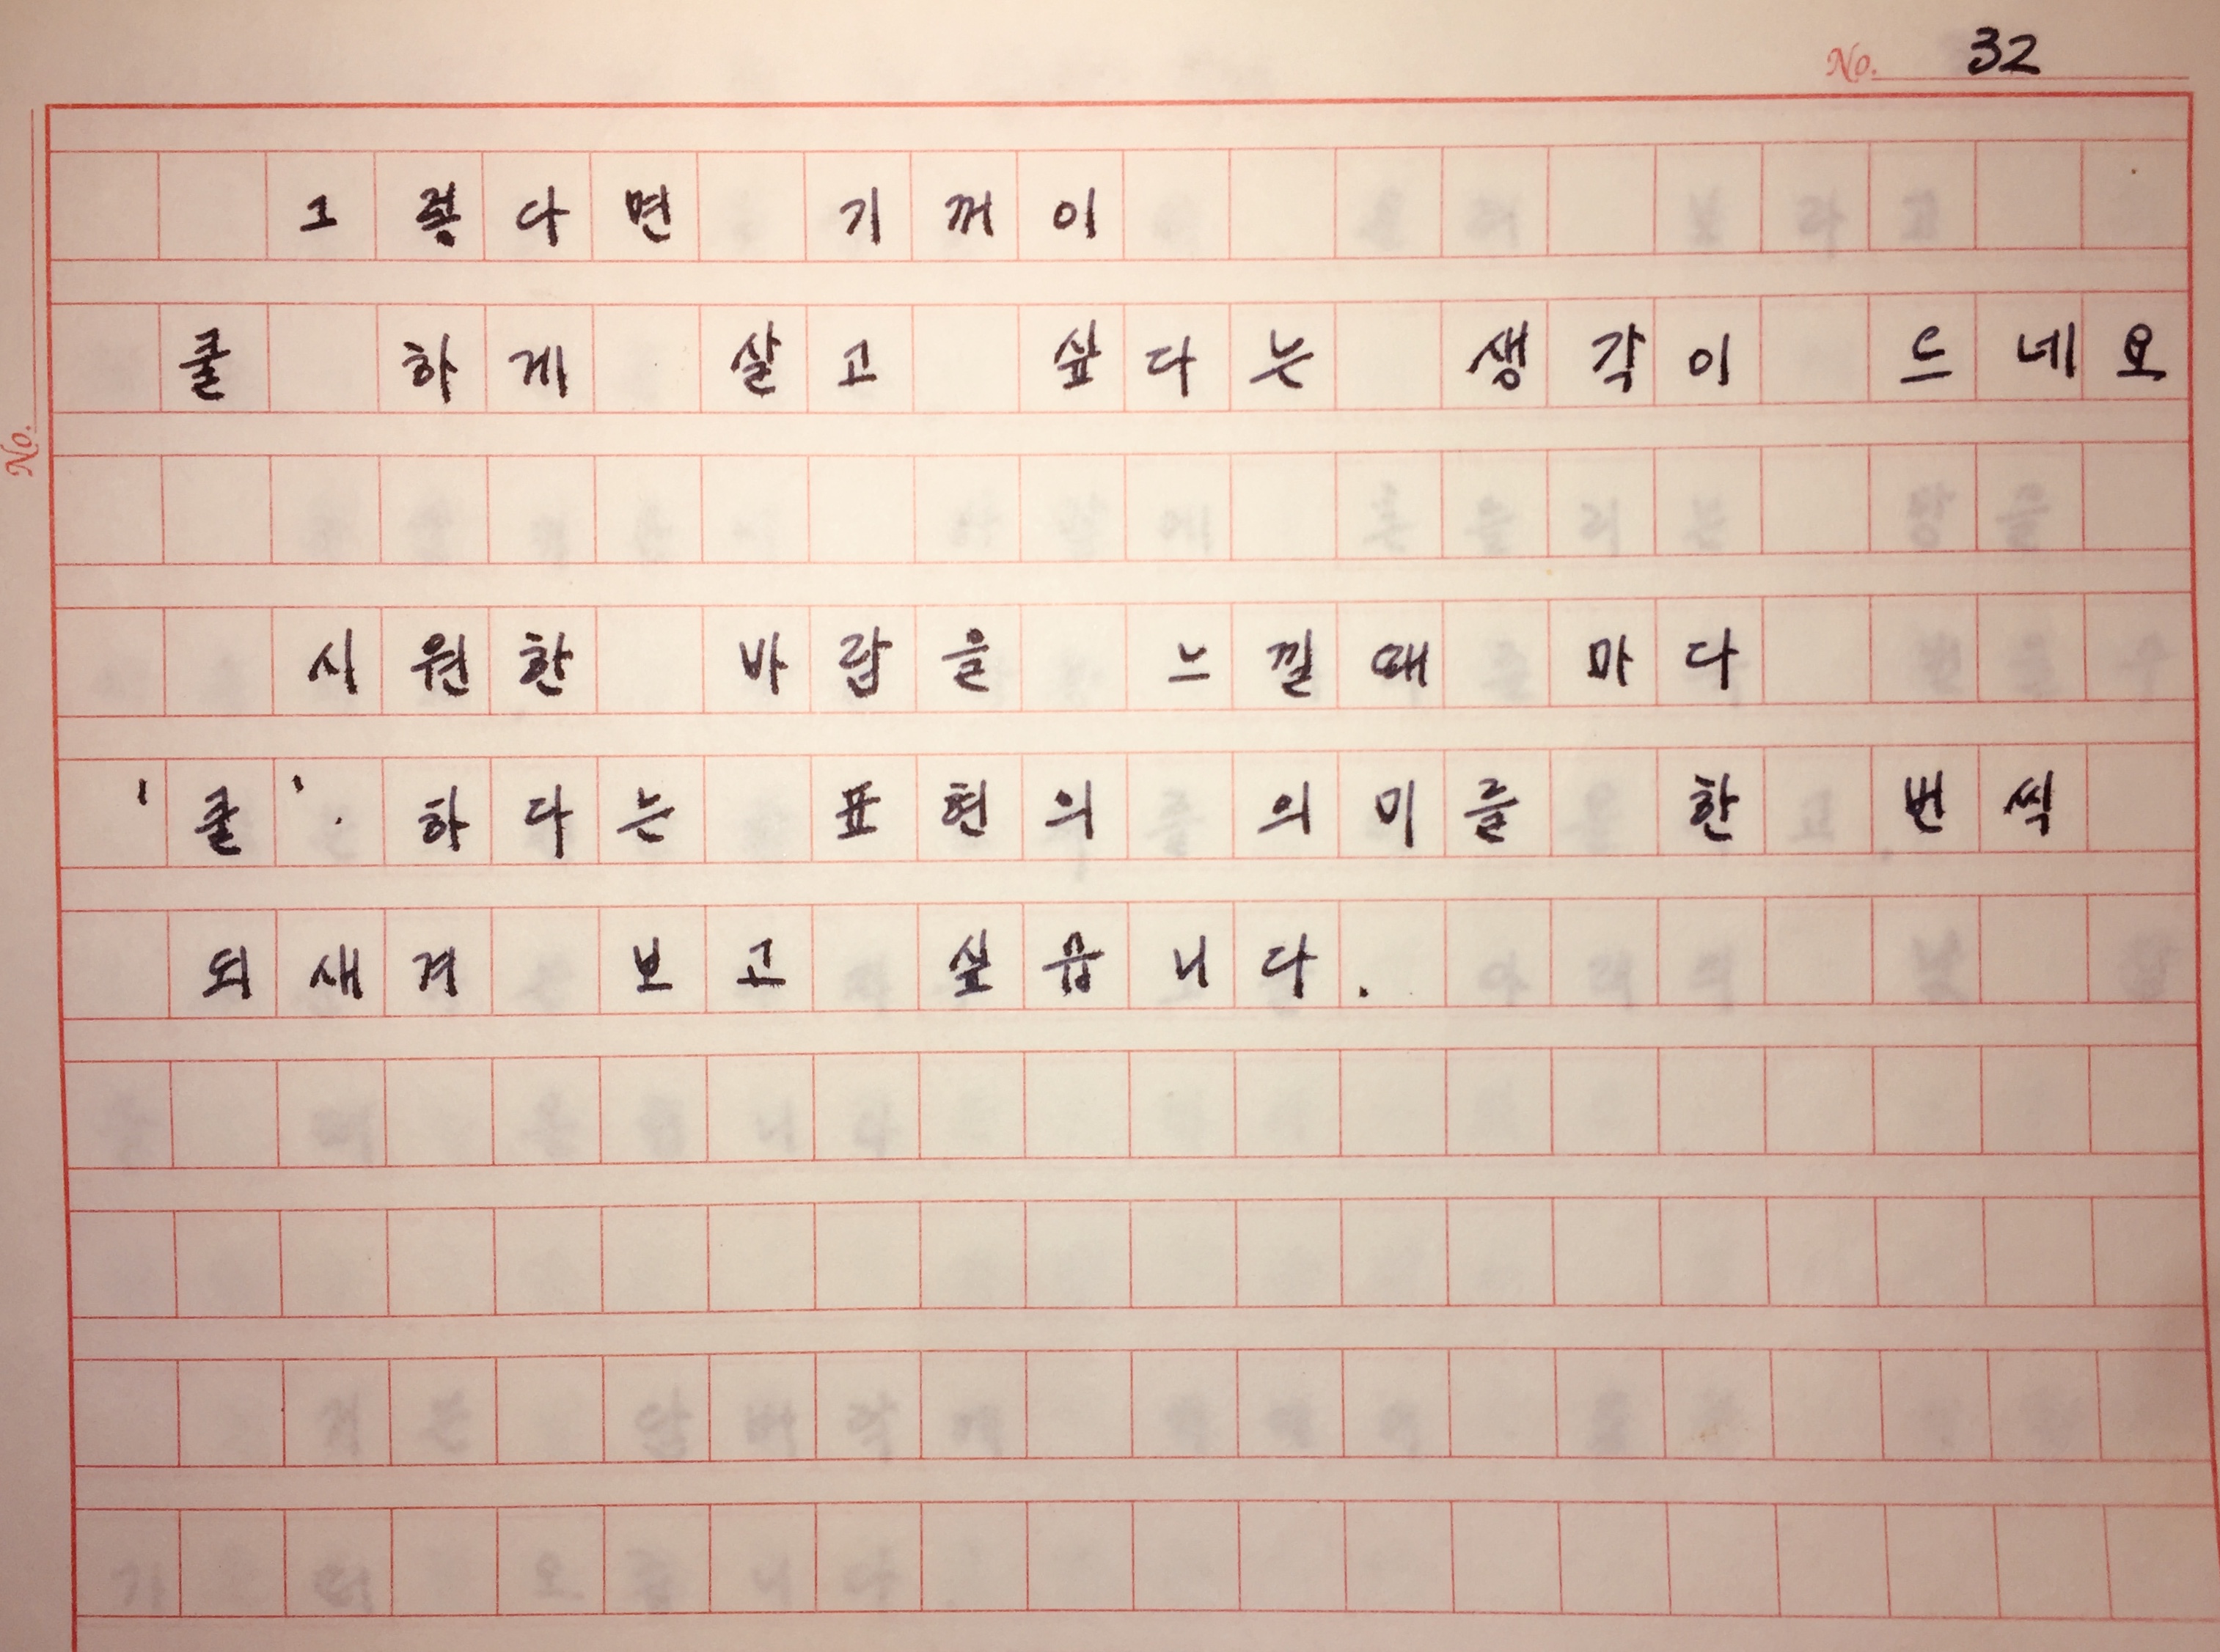 No. 32
그렇다면 기꺼이
쿨 하게 살고 싶다는 생각이 드네요
No.
시원한 바람을 느낄때 마다
'쿨' 하다는 표현의 의미를 한 번씩
되새겨 보고 싶습니다.